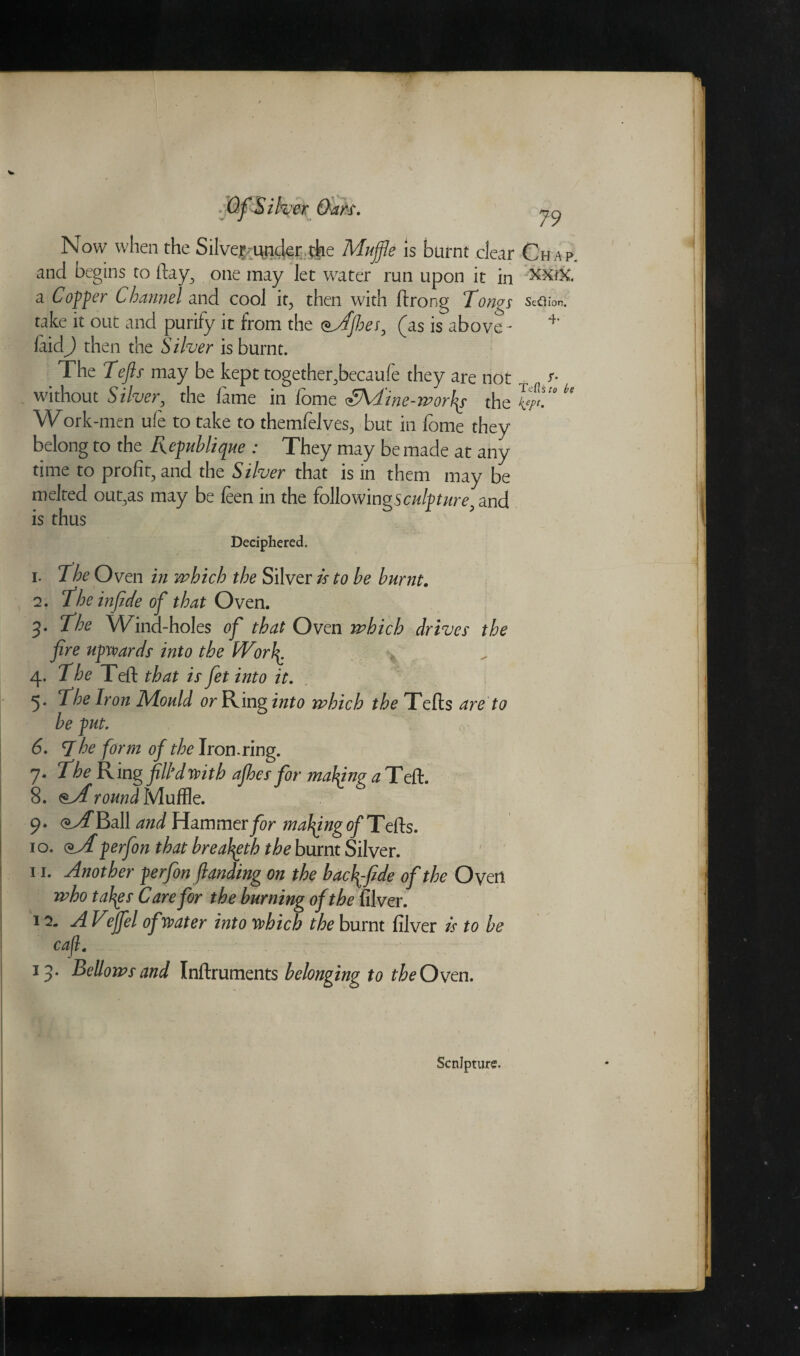 Of Silver Oars.
79
Now when the Silver under the Muffle is burnt clear
and begins to ſtay, one may let water run upon it in
a Copper Channel and cool it, then with ſtrong Tongs
take it out and purify it from the Aſhes, (as is above-
ſaid) then the Silver is burnt.
Chap.
XXIX.
Section.
4.
The Teſts may be kept together,becauſe they are not
without Silver, the ſame in ſome Mine-works the
Work-men uſe to take to themſelves, but in ſome they
belong to the Republique : They may be made at any
time to profit, and the Silver that is in them may be
melted out,as may be ſeen in the followingSculpture, and
is thus
5.
Teſts to be
kept.
Deciphered.
1. The Oven in which the Silver is to be burnt.
2. The inſide of that Oven.
3. The Wind-holes of that Oven which drives the
fire upwards into the Work.
4. The Teſt that is ſet into it.
5. The Iron Mould or Ring into which the Teſts are to
be put.
6. The form of the Iron-ring.
7. The Ring fill'd with aſhes for making a Teſt.
8. A round Muffle.
9. A Ball and Hammer for making of Teſts.
10. A perſon that breaketh the burnt Silver.
11. Another perſon ſtanding on the back-ſide of the Oven
who takes Care for the burning of the ſilver.
12. A Veſſel of water into which the burnt ſilver is to be
caſt.
13. Bellows and Inſtruments belonging to the Oven.
Sculpture.